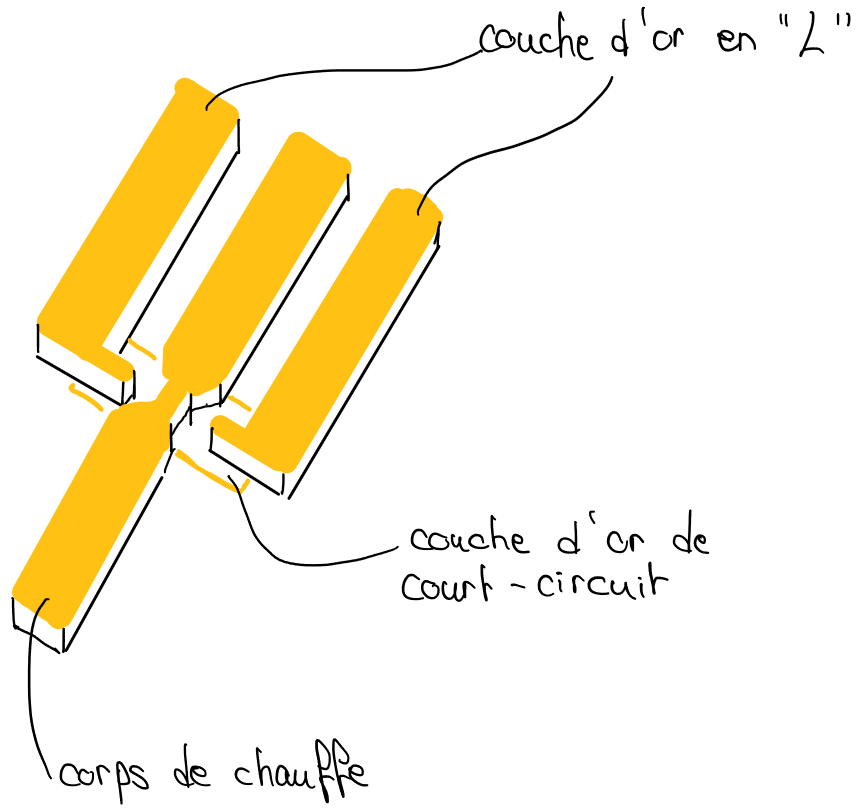 couche d'or en "L"
couche d'or de
court-circuit
corps de chauffe